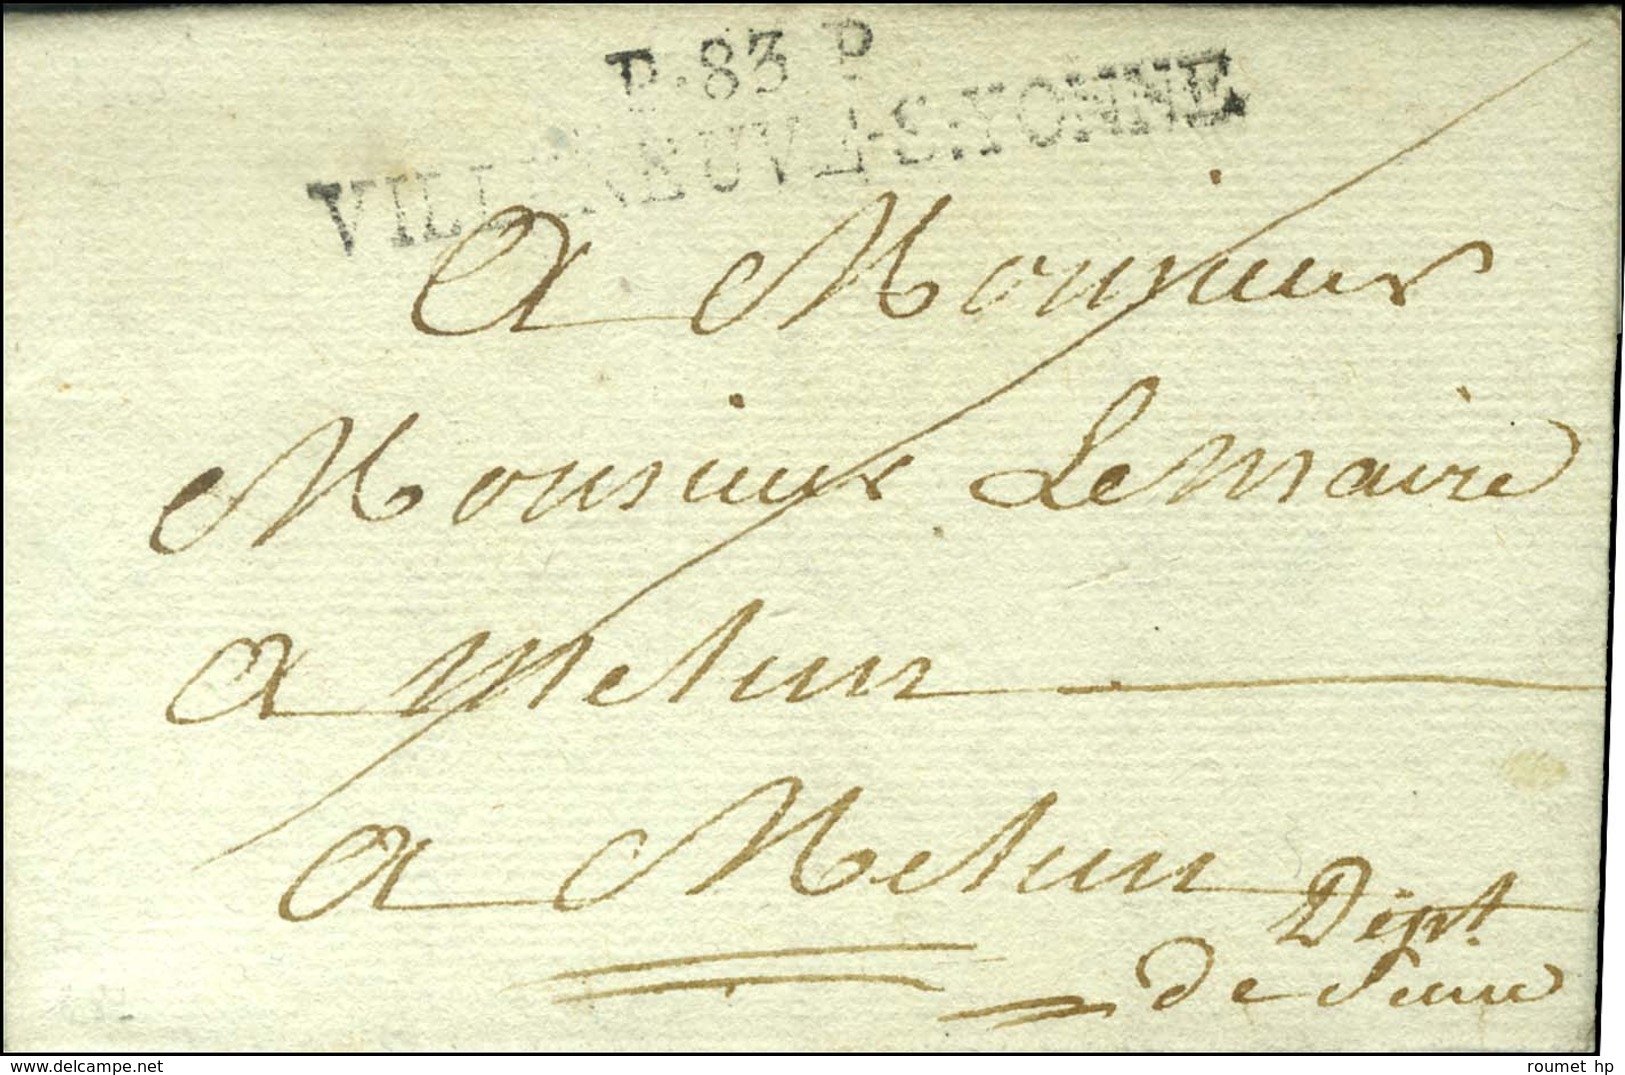 P. 83 P
VILLENEUVE-S-YONNE
A Monsieur
Monsieur Lemaire
a Melun
a Melun
Dépt.
de Seine
roumet hp